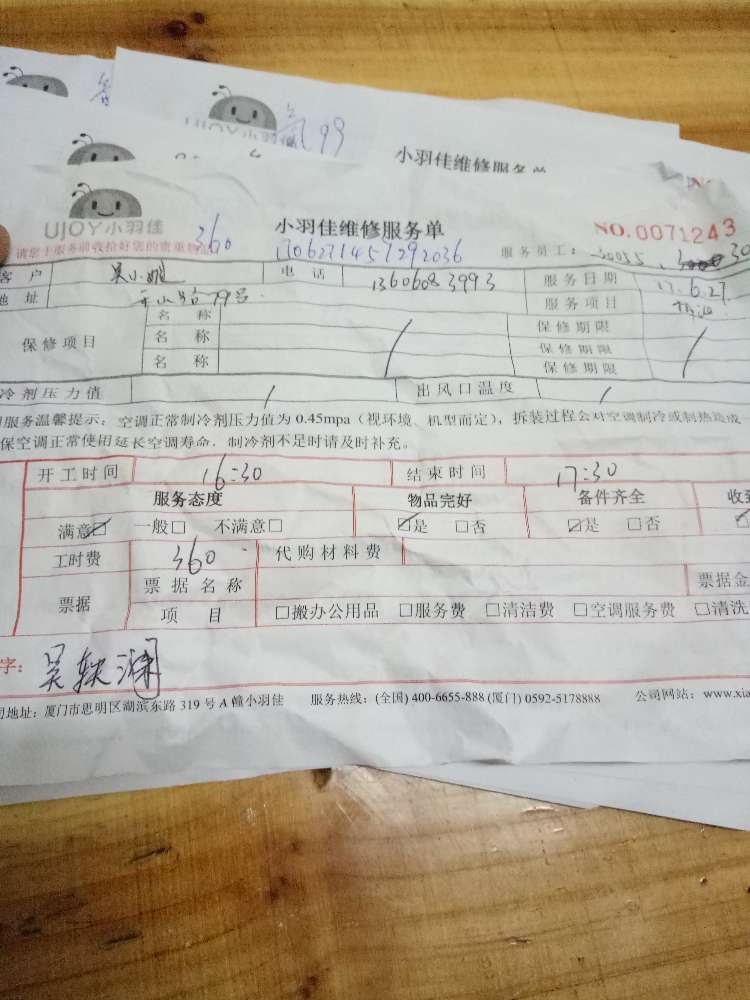 99
小羽佳维修服务单
UJOY小羽佳
360
小羽佳维修服务单
NO.0071243
请您于服务前收拾好您的贵重物品
服务员工：30055
客 户
吴小姐
电 话
13606083993
服务日期
17.6.27
地 址
开山路79号
服务项目
保修项目
名 称
保修期限
名 称
保修期限
名 称
保修期限
冷剂压力值
/
出风口温度
/
服务温馨提示：空调正常制冷剂压力值为 0.45mpa（视环境、机型而定），拆装过程会对空调制冷或制热造成一
保空调正常使用延长空调寿命．制冷剂不足时请及时补充。
开工时间
16:30
结束时间
17:30
服务态度
物品完好
备件齐全
满意☑ 一般□ 不满意□
☑是 □否
☑是 □否
工时费
360
代购材料费
票据
票据名称
票据金
项 目
□搬办公用品 □服务费 □清洁费 □空调服务费 □清洗
字：
司地址：厦门市思明区湖滨东路 319 号 A 幢小羽佳 服务热线：(全国) 400-6655-888 (厦门) 0592-5178888 公司网站：www.xia